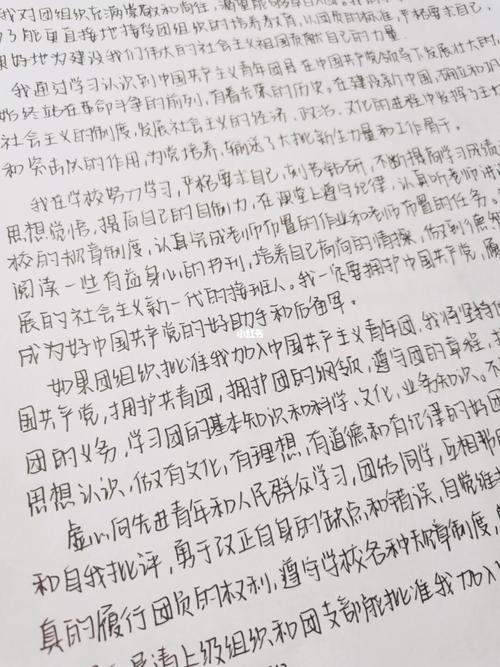 我对团组织充满崇敬和向往,渴望能够
了能更直接地接受团组织的培养教育,以团员的标准,严格要求自己,
更好地为建设我们伟大的社会主义祖国贡献自己的力量。
我通过学习认识到中国共产主义青年团员在中国共产党领导下发展壮大的,
始终站在革命斗争的前列,有着光荣的历史。在建设新中国,确立和巩
社会主义的制度,发展社会主义的经济、政治、文化的进程中发挥了生
和突击队的作用,为党培养、输送了大批新生力量和工作骨干。
我在学校努力学习,严格要求自己,刻苦钻研,不断提高学习成绩
思想觉悟,提高自己的自制力,在课堂上遵守纪律,认真听老师讲
校的规章制度,认真完成老师布置的作业和老师布置的任务。
阅读一些有益身心的书刊,培养自己高尚的情操,做到德
展的社会主义新一代的接班人。我一定要拥护中国共产党,
成为好中国共产党的好助手和后备军。
小红书
如果团组织批准我加入中国共产主义青年团,我将坚持
国共产党,拥护共青团,拥护团的纲领,遵守团的章程,
团的义务,学习团的基本知识和科学、文化、业务知识。不
思想认识,做有文化,有理想,有道德和有纪律的好团
虚心向先进青年和人民群众学习,团结同学,互相帮
和自我批评,勇于改正自身的缺点和错误,自觉维
真的履行团员的权利,遵守学校各种规章制度,
请上级组织和团支部能批准我加入